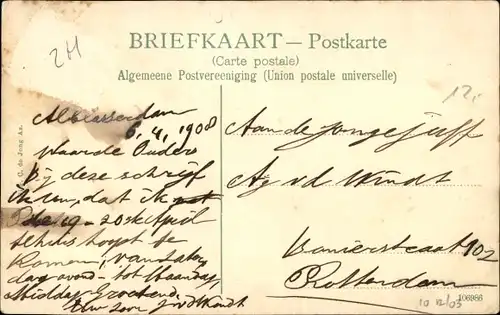 2H
BRIEFKAART — Postkarte
(Carte postale)
Algemeene Postvereeniging (Union postale universelle)
12.
C. de Jong Az.
Alblasserdam
6.4.1908
Waarde Ouders
Bij deze schrijf
ik u, dat ik
19 - 20 April
hoopt te
Komen, van Zater
dag avond - tot Maandag
Middag. Groetend
Uw zoon
Aan de Jongejuff
Ag v d Windt
straat 102
Rotterdam
106986